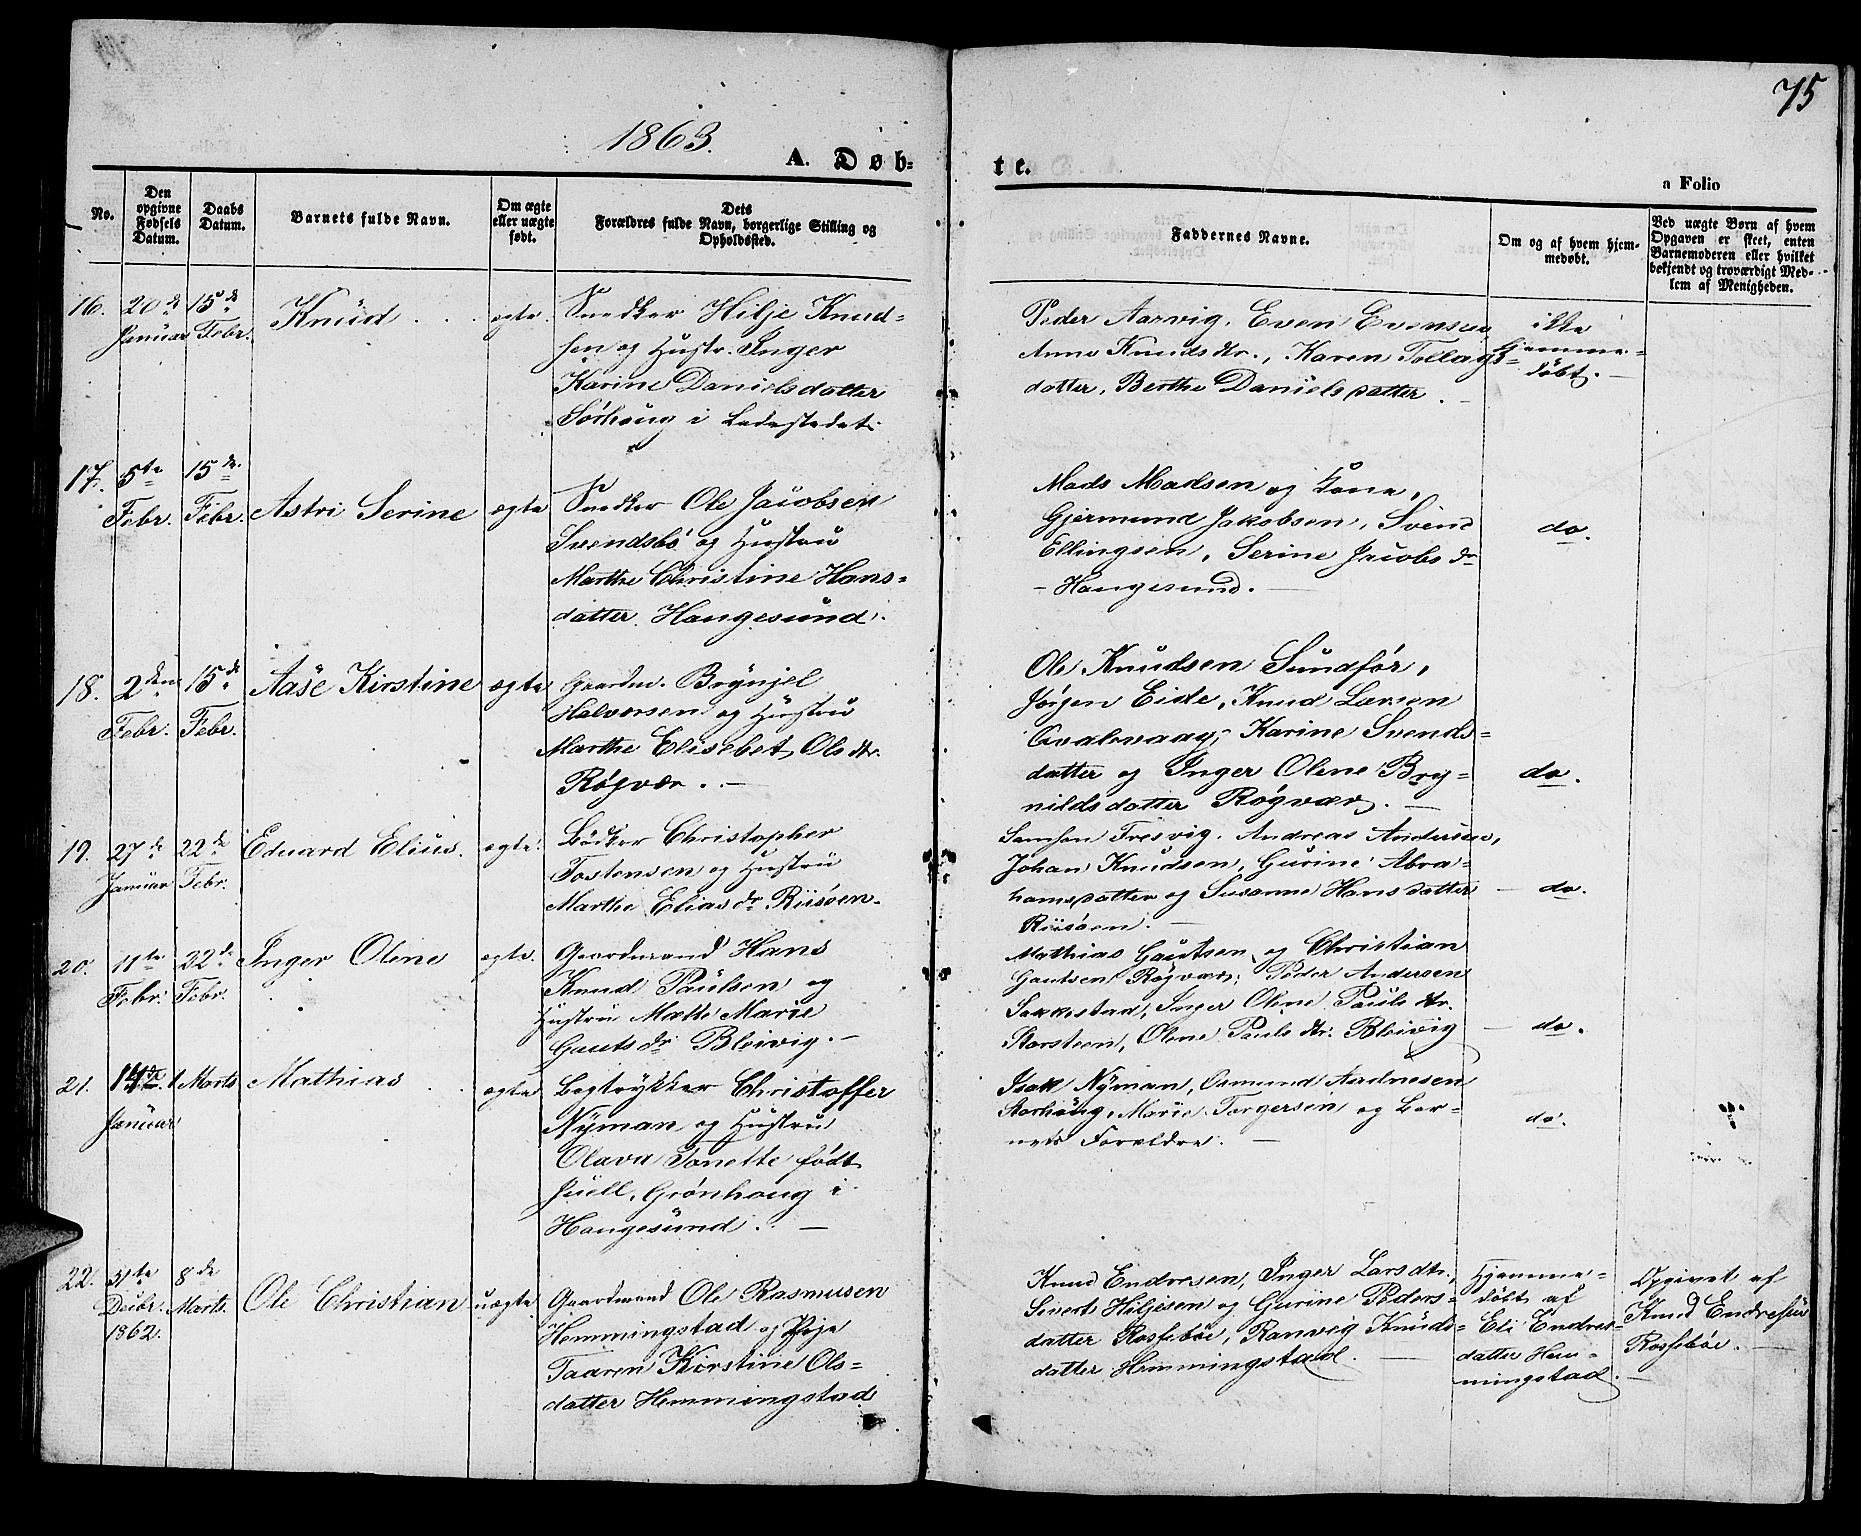 75
1863.
A. Døb-
te.
a Folio
No.
Den opgivne Fødsels Datum.
Daabs Datum.
Barnets fulde Navn.
Om ægte eller uægte født.
Dets Forældres fulde Navn, borgerlige Stilling og Opholdssted.
Faddernes Navne.
Om og af hvem hjemmedøbt.
Ved uægte Børn af hvem Opgaven er skeet, enten Barnemoderen eller hvilket bekjendt og troværdigt Medlem af Menigheden.
16.
20de
Januar
15de
Febr.
Knud
ægte.
Snedker Hilje Knud-
sen og Hustr. Inger
Karine Danielsdatter
Sørhaug i Ladestedet.
Peder Aarvig, Even Evensen
Anne Knudsdtr., Karen Tollags-
datter, Berthe Danielsdatter.
ikke
hjemme-
døbt.
17.
5te
Febr.
15de
Febr.
Astri Serine
ægte
Snedker Ole Jacobsen
Svendsbö og Hustru
Marthe Christine Hans-
datter Haugesund.
Mads Madsen og Kone,
Gjermund Jakobsen, Svend
Ellingsen, Serine Jacobsdr
- Haugesund.
do.
18.
2den
Febr.
15de
Febr.
Aase Kirstine
ægte
Gaardm. Brynjel
Halvorsen og Hustru
Marthe Elisebet Olsdtr.
Røgvær.
Ole Knudsen Sundfør,
Jørgen Eide, Knud Larsen
Qvalevaag, Karine Svends-
datter og Inger Olene Bry-
nildsdatter Røgvær.
do.
19.
27de
Januar
22de
Febr.
Eduard Elius.
ægte.
Bødker Christopher
Tostensen og Hustru
Marthe Eliasdr Riisøen.
Samson Tresvig, Andreas Andersen,
Johan Knudsen, Gurine Abra-
hamsdatter og Susanne Hansdatter
Riisøen.
do.
20.
11te
Febr.
22de
Febr.
Inger Olene
ægte.
Gaardmand Hans
Knud Paulsen og
Hustru Mette Marie
Gautsdr Bleivig.
Mathias Gautsen og Christian
Gautsen Røgvær, Peder Andersen
Sakkestad, Inger Olene Paulsdtr.
Storsteen, Olene Paulsdtr. Bleivig
do.
21.
14de
Januar
1 Marts
Mathias
ægte
Bogtrykker Christoffer
Nyman og Hustru
Olava Tonette født
Juell, Grønhaug i
Haugesund.
Isak Nyman, Osmund Aadnesen
Storhaug, Marie Torgersen og Bar-
nets Forældre.
do.
22.
31te
Decbr.
1862.
8de
Marts.
Ole Christian
uægte
Gaardmand Ole Rasmusen
Hemmingstad og Pige
Taaren Kirstine Ols-
datter Hemmingstad
Knud Endresen, Inger Larsdtr.,
Sivert Hiljesen og Gurine Peders-
datter Rossebøe, Ranveig Knuds-
datter Hemmingstad.
Hjemme-
døbt af
Eli Endres-
datter Hem-
mingstad.
Opgivet af
Knud Endresen
Rossebøe.